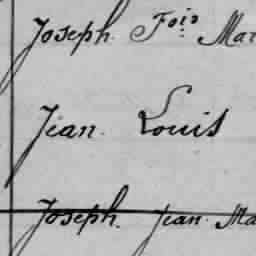 Joseph. Fois Mar
Jean. Louis
Joseph. Jean. Ma